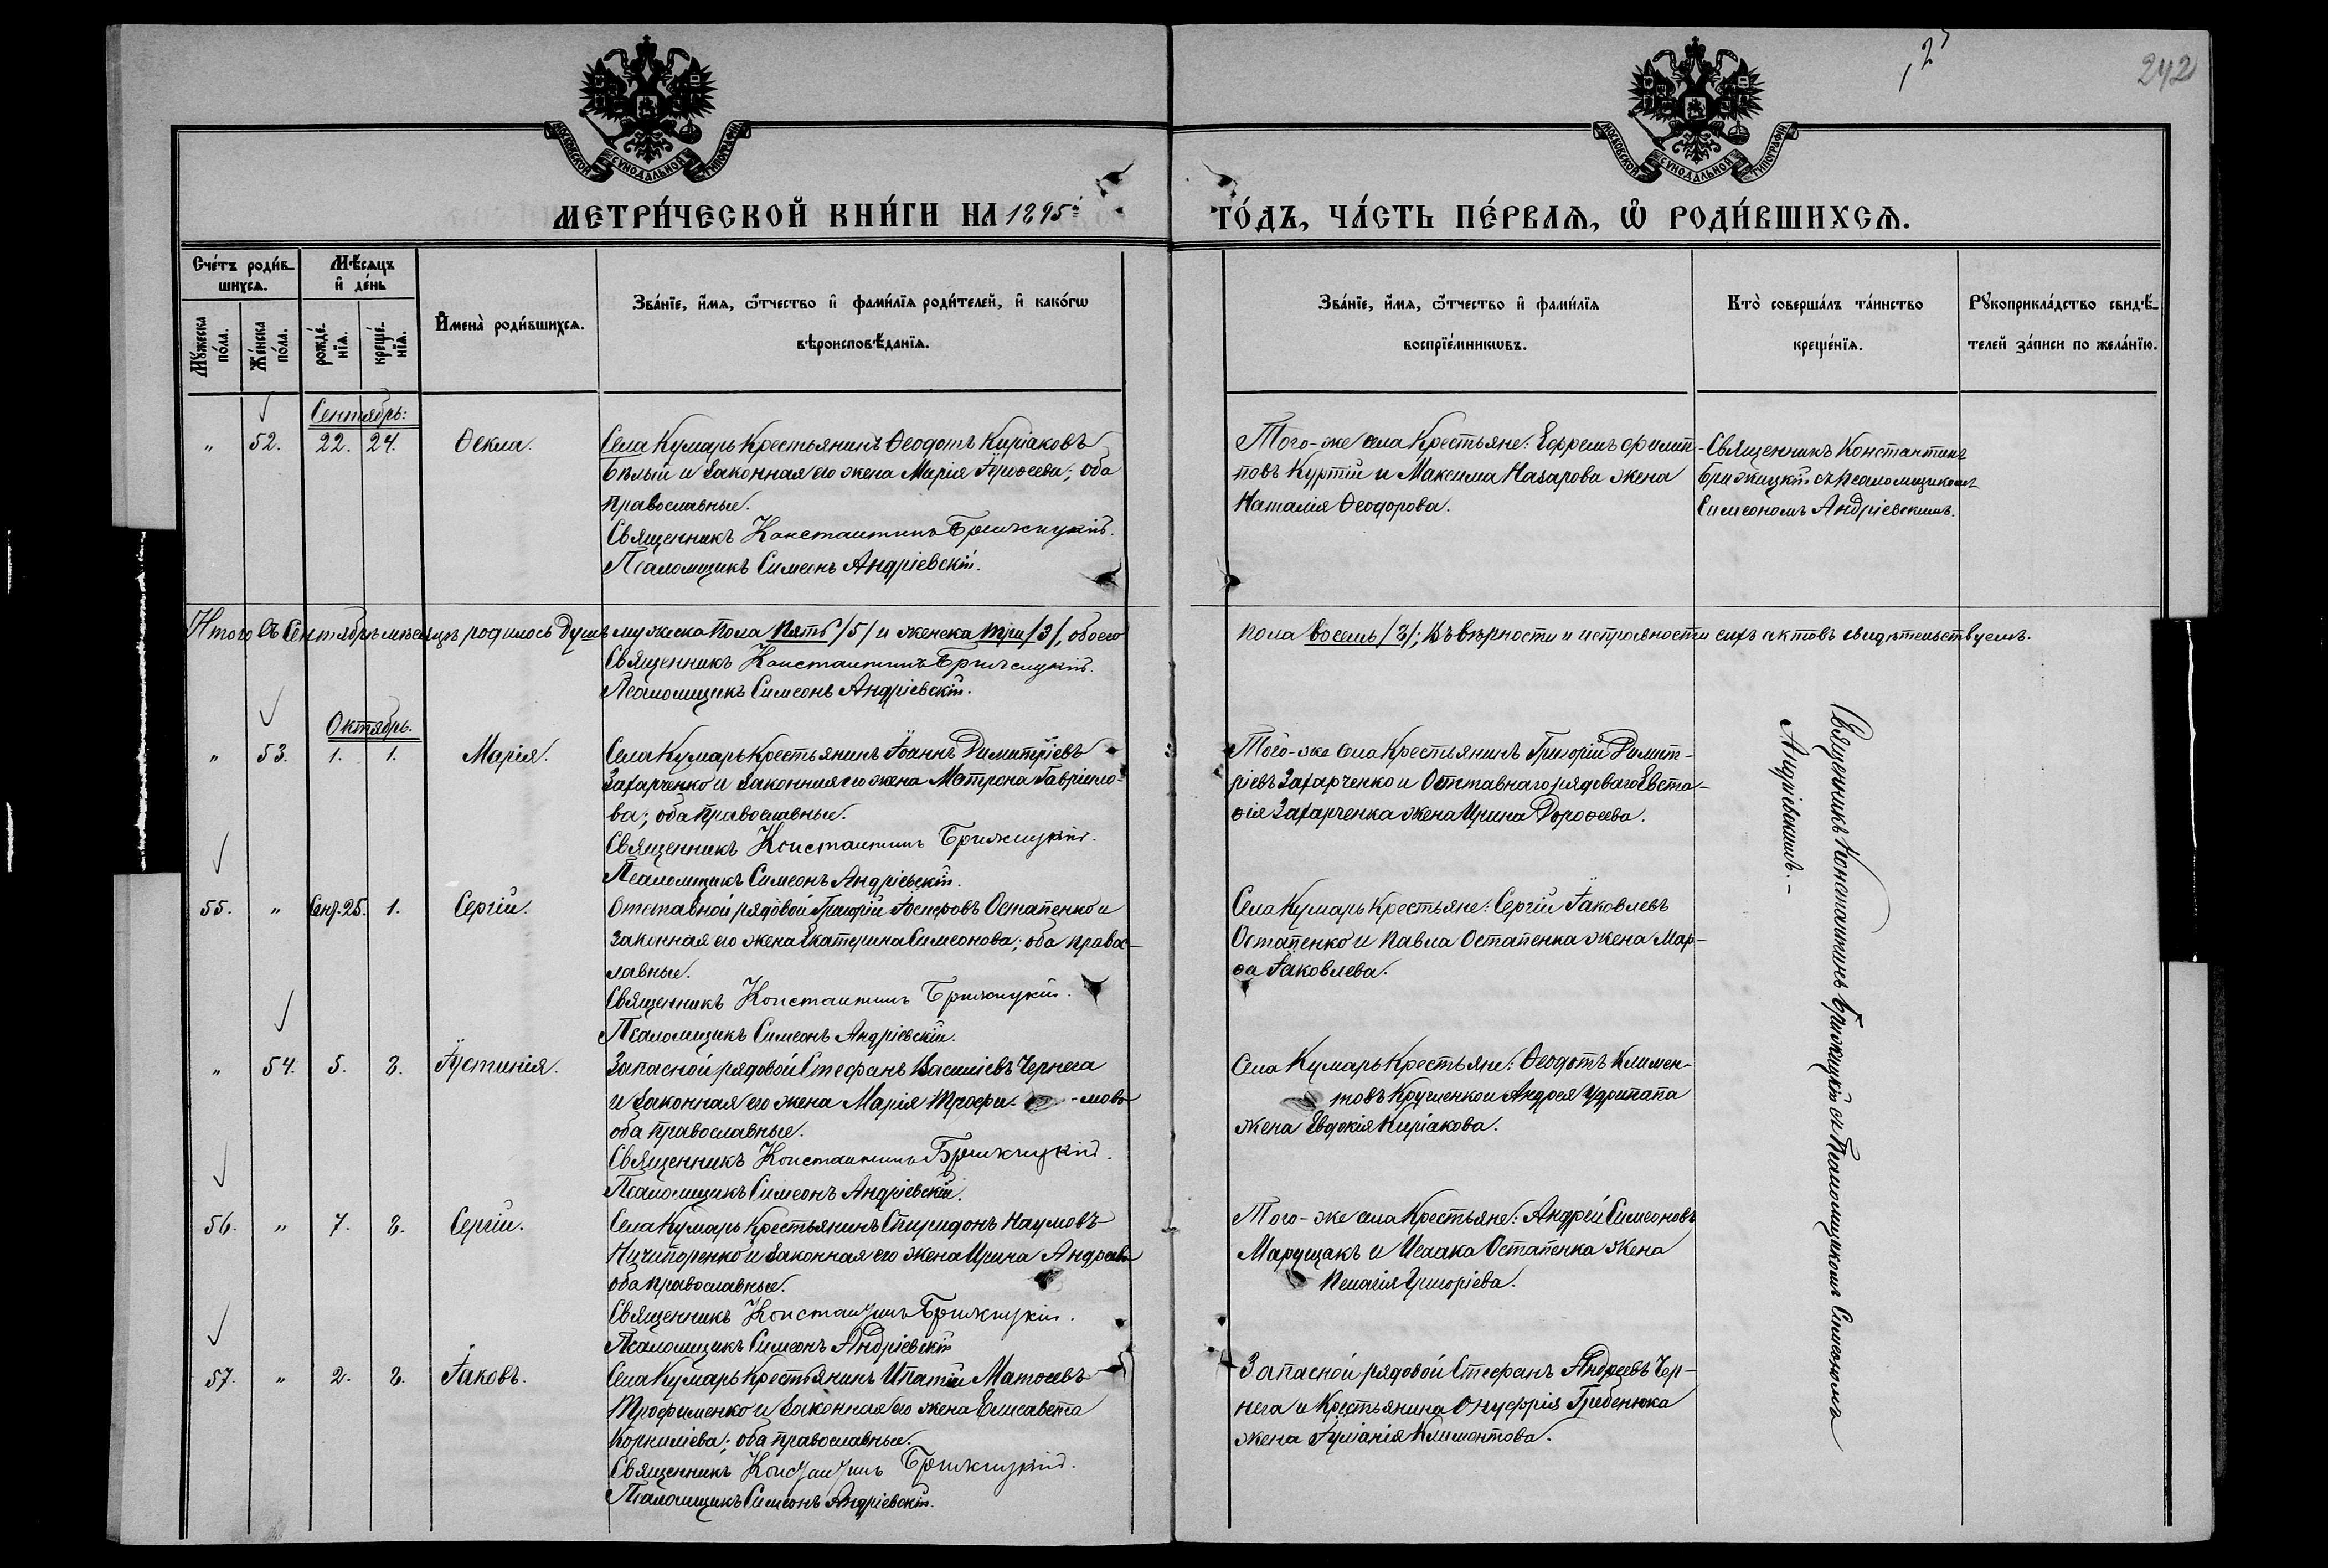 242
МОСКОВСКОЙ СУНОДАЛЬНОЙ ТИПОГРАФІИ
МОСКОВСКОЙ СУНОДАЛЬНОЙ ТИПОГРАФІИ
МЕТРИ́ЧЕСКОЙ КНИ́ГИ НА 1895й
ГО́ДЪ, ЧА́СТЬ ПЕ́РВАѦ, Ѡ҆ РОДИ́ВШИХСѦ.
Сче́тъ роди́в-
шихсѧ.
Мꙋ́жеска по́ла.
Же́нска по́ла.
Мѣ́сѧцъ
и҆ де́нь
рожде́-
нїѧ.
креще́-
нїѧ.
И҆мена̀ роди́вшихсѧ.
Зва́нїе, и҆́мѧ, ѻ҆́тчество и҆ фами́лїѧ роди́телей, и҆ како́гѡ
вѣроисповѣ́данїѧ.
Зва́нїе, и҆́мѧ, ѻ҆́тчество и҆ фами́лїѧ
воспрїе́мникѡвъ.
Кто̀ соверша́лъ та́инство
креще́нїѧ.
Рꙋкоприкла́дство свидѣ́-
телей за́писи по жела́нїю.
Сентябрь:
" 52. 22. 24. Ѳекла.
Села Кумарь Крестьянинъ Ѳеодотъ Киріаковъ
Бѣлый и законная его жена Марія Ѳ; оба
православные.
Священникъ Константинъ Брижицкій.
Псаломщикъ Симеонъ Андріевскій.
Того-же села Крестьяне: Ефремъ Филип-
повъ Куртій и Максима Назарова жена
Наталія Ѳеодорова.
Священникъ Константинъ
Брижицкій съ псаломщикомъ
Симеономъ Андріевскимъ.
Итого въ Сентябрѣ мѣсяцѣ родилось душъ мужеска пола пять /5/ и женска три /3/, обоего
пола восемь /8/; въ вѣрности и исправности сихъ актовъ свидѣтельствуемъ.
Священникъ Константинъ Брижицкій.
Псаломщикъ Симеонъ Андріевскій.
Октябрь.
" 53. 1. 1. Марія.
Села Кумарь Крестьянинъ Іоаннъ Димитріевъ
Захарченко и законная его жена Матрона Гавріило-
ва; оба православные.
Священникъ Константинъ Брижицкій.
Псаломщикъ Симеонъ Андріевскій.
Того-же села Крестьянинъ Григорій Димит-
ріевъ Захарченко и Отставнаго рядоваго Евста-
ѳія Захарченка жена Ирина Дороѳеева.
Священникъ Константинъ Брижицкій съ Псаломщикомъ Симеономъ
Андріевскимъ.-
55. " Сент. 25. 1. Сергій.
Отставной рядовой Григорій Іосифовъ Остапенко и
законная его жена Екатерина Симеонова; оба право-
славные.
Священникъ Константинъ Брижицкій.
Псаломщикъ Симеонъ Андріевскій.
Села Кумарь Крестьяне: Сергій Іаковлевъ
Остапенко и Павла Остапенка жена Мар-
ѳа Іаковлева.
" 54. 5. 8. Іустинія.
Запасной рядовой Стефанъ Василіевъ Чернега
и законная его жена Марія Трофи- -мова
оба православные.
Священникъ Константинъ Брижицкій.
Псаломщикъ Симеонъ Андріевскій.
Села Кумарь Крестьяне: Ѳеодотъ Климен-
товъ и Андрея
жена Евдокія Киріакова.
56. " 7. 8. Сергій.
Села Кумарь Крестьянинъ Спиридонъ Наумовъ
Ничипоренко и законная его жена Ирина Андреева
оба православные.
Священникъ Константинъ Брижицкій.
Псаломщикъ Симеонъ Андріевскій
Того-же села Крестьяне: Андрей Симеоновъ
Марущакъ и Исаака Остапенка жена
Пелагія Григоріева.
57. " 2. 8. Іаковъ.
Села Кумарь Крестьянинъ Ипатій Матѳеевъ
Трофименко и законная его жена Елисавета
Корниліева; оба православные.
Священникъ Константинъ Брижицкій.
Псаломщикъ Симеонъ Андріевскій.
Запасной рядовой Стефанъ Андреевъ Чер-
нега и Крестьянина Онуфрія Гребенюка
жена Іуліанія Климентова.